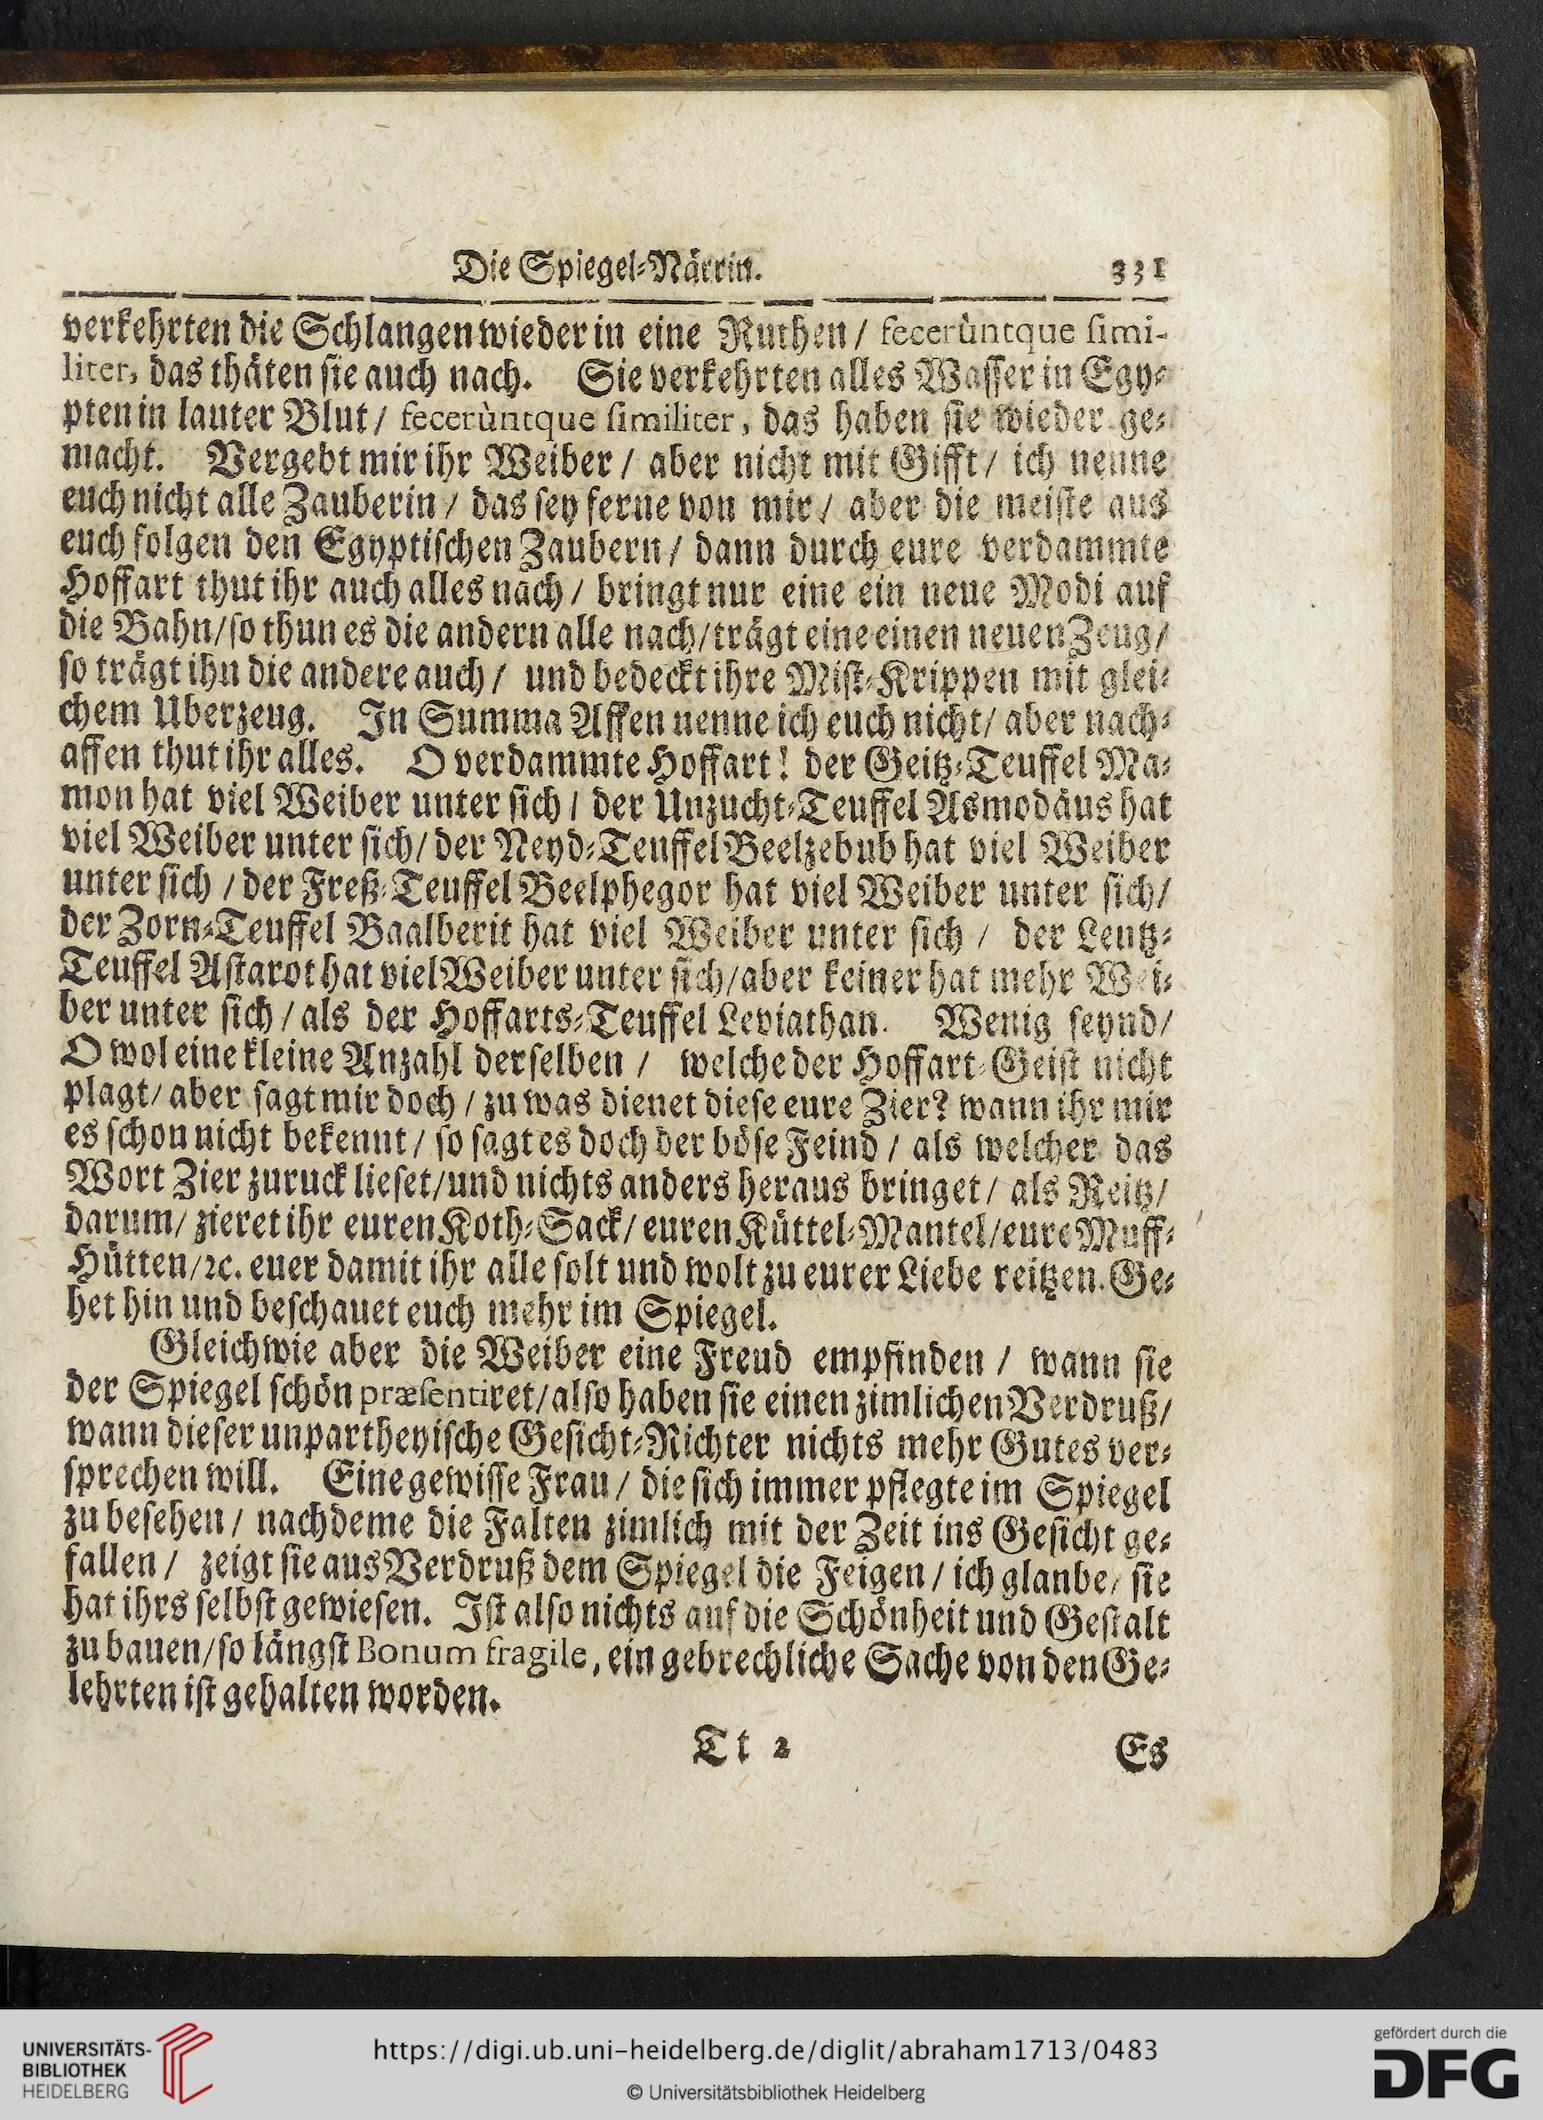 Die Spiegel-Närrin. 331
verkehrten die Schlangen wieder in eine Ruthen / fecerùntque ſimi-
liter, das thäten ſie auch nach. Sie verkehrten alles Waſſer in Egy-
pten in lauter Blut / fecerùntque ſimiliter, das haben ſie wieder ge-
macht. Vergebt mir ihr Weiber / aber nicht mit Gifft / ich nenne
euch nicht alle Zauberin / das ſey ferne von mir / aber die meiſte aus
euch folgen den Egyptiſchen Zaubern / dann durch eure verdammte
Hoffart thut ihr auch alles nach / bringt nur eine ein neue Modi auf
die Bahn / ſo thun es die andern alle nach / trägt eine einen neuen Zeug /
ſo trägt ihn die andere auch / und bedeckt ihre Miſt-Krippen mit glei-
chem Uberzeug. In Summa Affen nenne ich euch nicht / aber nach-
affen thut ihr alles. O verdammte Hoffart! der Geitz-Teuffel Ma-
mon hat viel Weiber unter ſich / der Unzucht-Teuffel Asmodäus hat
viel Weiber unter ſich / der Neyd-Teuffel Beelzebub hat viel Weiber
unter ſich / der Freß-Teuffel Beelphegor hat viel Weiber unter ſich /
der Zorn-Teuffel Baalberit hat viel Weiber unter ſich / der Lentz-
Teuffel Aſtarot hat viel Weiber unter ſich / aber keiner hat mehr Wei-
ber unter ſich / als der Hoffarts-Teuffel Leviathan. Wenig ſeynd /
O wol eine kleine Anzahl derſelben / welche der Hoffart-Geiſt nicht
plagt / aber ſagt mir doch / zu was dienet dieſe eure Zier? wann ihr mir
es ſchon nicht bekennt / ſo ſagt es doch der böſe Feind / als welcher das
Wort Zier zuruck lieſet / und nichts anders heraus bringet / als Reitz /
darum / zieret ihr euren Koth-Sack / euren Küttel-Mantel / eure Muff-
Hütten / ꝛc. euer damit ihr alle ſolt und wolt zu eurer Liebe reitzen. Ge-
het hin und beſchauet euch mehr im Spiegel.
Gleichwie aber die Weiber eine Freud empfinden / wann ſie
der Spiegel ſchön præſentiret / alſo haben ſie einen zimlichen Verdruß /
wann dieſer unpartheyiſche Geſicht-Richter nichts mehr Gutes ver-
ſprechen will. Eine gewiſſe Frau / die ſich immer pflegte im Spiegel
zu beſehen / nachdeme die Falten zimlich mit der Zeit ins Geſicht ge-
fallen / zeigt ſie aus Verdruß dem Spiegel die Feigen / ich glanbe / ſie
hat ihrs ſelbſt gewieſen. Iſt alſo nichts auf die Schönheit und Geſtalt
zu bauen / ſo längſt Bonum fragile, ein gebrechliche Sache von den Ge-
lehrten iſt gehalten worden.
Tt 2 Es
UNIVERSITÄTS-
BIBLIOTHEK
HEIDELBERG
https://digi.ub.uni-heidelberg.de/diglit/abraham1713/0483
© Universitätsbibliothek Heidelberg
gefördert durch die
DFG